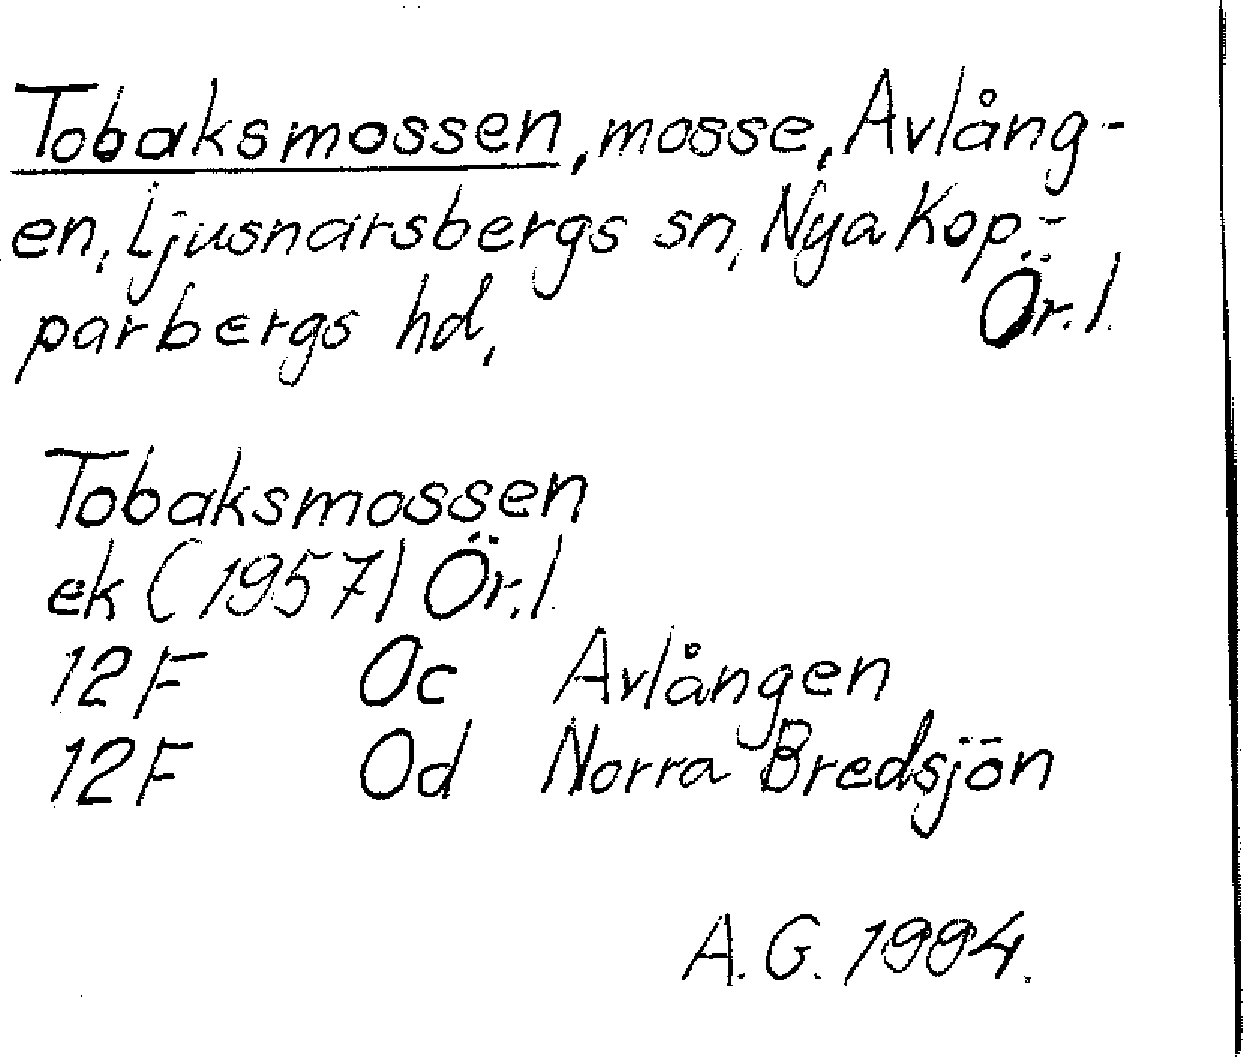 Tobaksmossen, mosse, Avlång-
en, Ljusnarsbergs sn, Nya Kop-
parbergs hd, Ör.l.
Tobaksmossen
ek (1957) Ör.l.
12F 0c Avlången
12F 0d Norra Bredsjön
A.G. 1994.